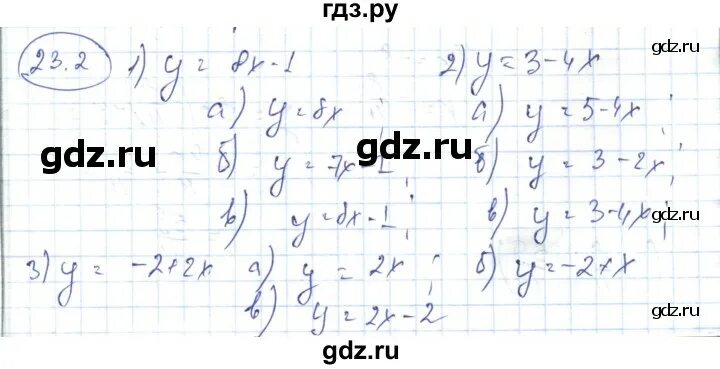 гдз.ру
23.2 1) y = 8x-1 2) y = 3-4x
gdz.ru
а) y=8x а) y = 5-4x;
gdz.ru gdz.ru
б) y = 7x-1; б) y = 3-2x;
в) y=8x-1; в) y=3-4x;
gdz.ru
3) y = -2+2x а) y = 2x; б) y=-2+x
gdz.ru gdz.ru
в) y=2x-2
gdz.ru